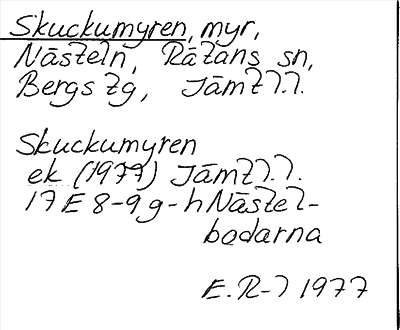 Skuckumyren, myr,
Nästeln, Rätans sn,
Bergs tg, Jämtl.l.
Skuckumyren
ek (1977) Jämtl.l.
17 E 8-9 g-h Nästel-
bodarna
E.R-l 1977